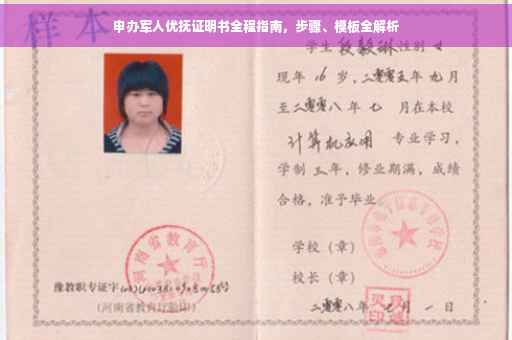 申办军人优抚证明书全程指南，步骤、模板全解析
样本
学生段毅琳性别女
现年16岁，二零零五年九月
至二零零八年七月在本校
计算机应用专业学习，
学制三年，修业期满，成绩
合格，准予毕业。
学校（章）
校长（章）
二零零八年七月一日
河南省教育厅
豫教职专证字
（河南省教育厅验印）